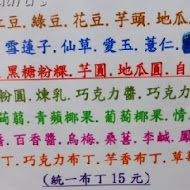 豆、綠豆、花豆、芋頭、地瓜、
雪蓮子、仙草、愛玉、薏仁、
黑糖粉粿、芋圓、地瓜圓、自
粉圓、煉乳、巧克力醬、巧克
葡萄、青蘋椰果、葡萄椰果、情
醬、百香醬、烏梅、桑葚、李鹹、鳳
丁、巧克力布丁、芋香布丁、草
(統一布丁 15 元)